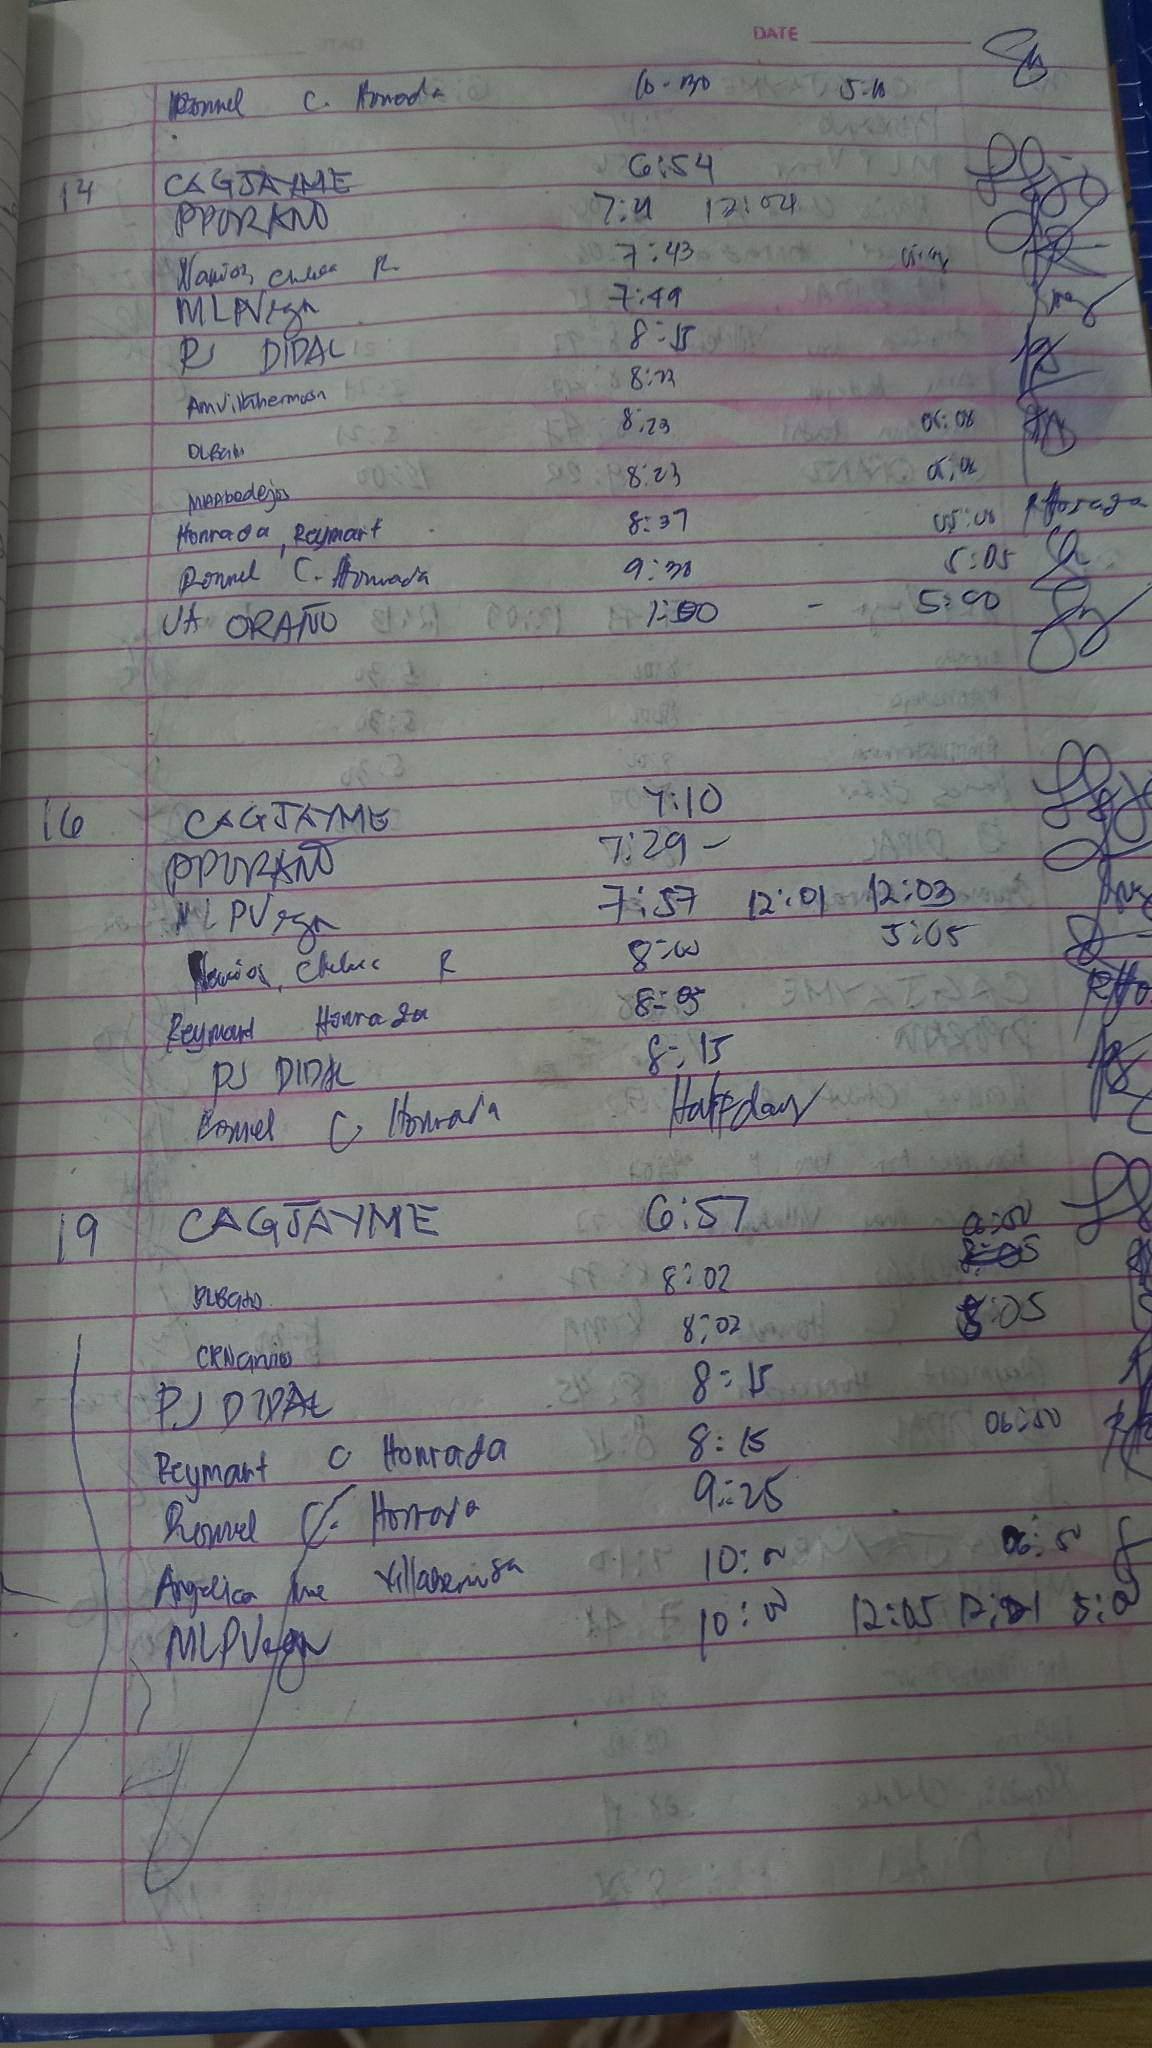 DATE
Ronnel C. Honrada 10:30 5:10
14 CAGJAYME 6:54
PPORAÑO 12:04
R. 7:43
MLPVega 7:49
PJ DIDAL 8:15
Amvillahermosa 8:23
DLBato 8:23 05:08
MAAbodejos 8:23 05:08
Honrada, Reymart 8:37 05:08 RHonrada
Ronnel C. Honrada 9:30 5:05
JA ORAÑO 1:00 - 5:00
16 CAGJAYME 7:10
PPORAÑO 7:29 -
MLPVega 7:57 12:01 12:03
Navios, Chelsea R 8:00 5:05
Reymart Honrada 8:05
PJ DIDAL 8:15
Ronnel C Honrada Halfday
19 CAGJAYME 6:57
DLBato 8:02 06:50
CRNavios 8:02 5:05
PJ DIDAL 8:15
Reymart C Honrada 8:15 06:50
Ronnel C. Honrada 9:25
Angelica Mae Villahermosa 10:00 06:50
MLPVega 10:00 12:05 5:00